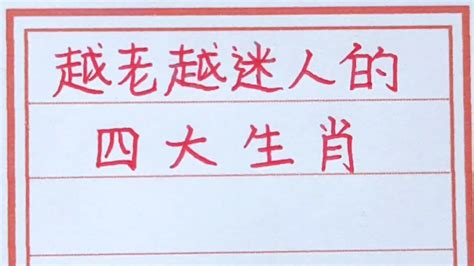 越老越迷人的
四大生肖